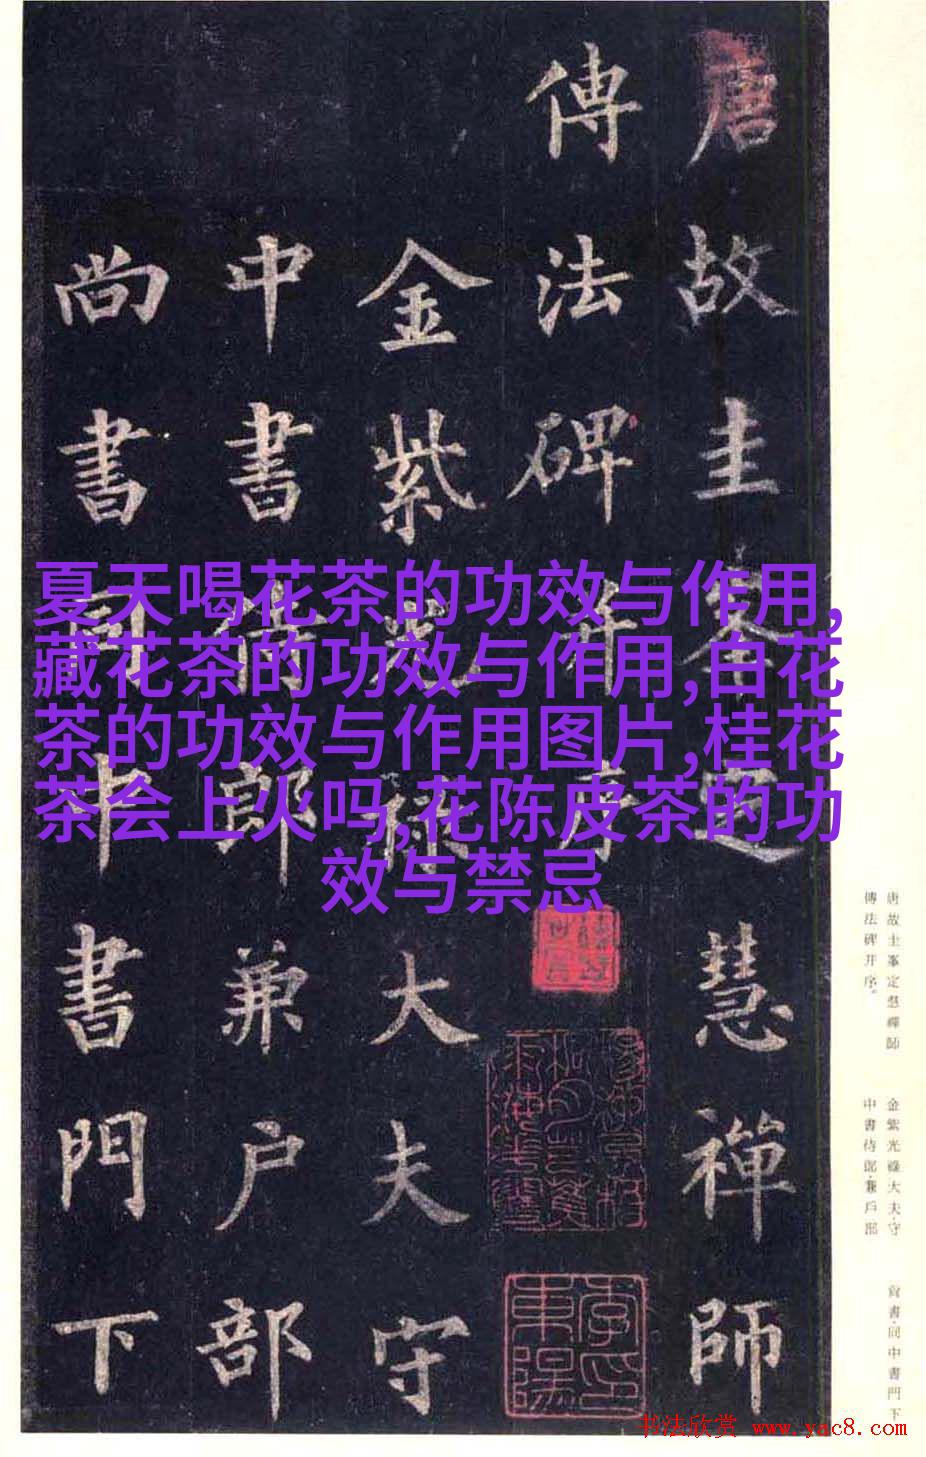 唐故圭峯定慧禪師
傳法碑并序
金紫光祿大夫守
中書侍郎兼户部
尚書同中書門下
夏天喝花茶的功效与作用,
藏花茶的功效与作用,白花
茶的功效与作用图片,桂花
茶会上火吗,花陈皮茶的功
效与禁忌
唐故圭峯定慧禪師
傳法碑并序。
金紫光祿大夫·守
中書侍郎·兼戶部
尚書·同中書門下
书法欣赏 www.yac8.com